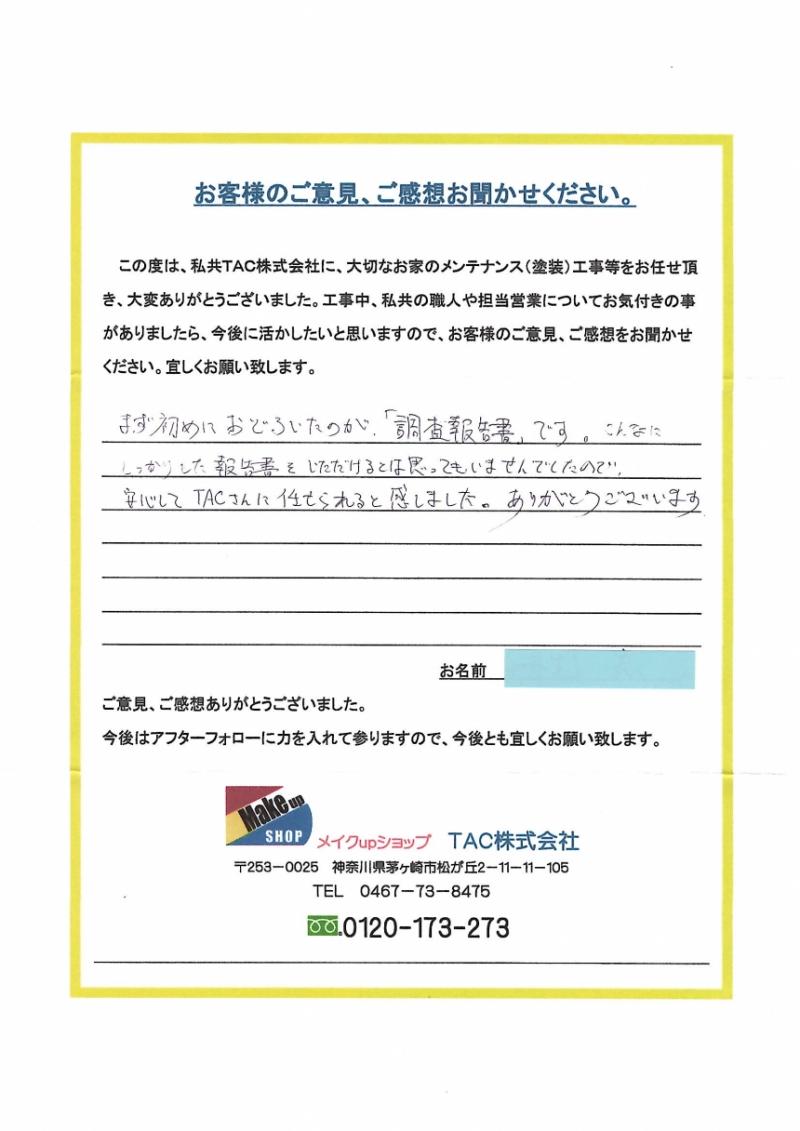 お客様のご意見、ご感想お聞かせください。
この度は、私共TAC株式会社に、大切なお家のメンテナンス（塗装）工事等をお任せ頂
き、大変ありがとうございました。工事中、私共の職人や担当営業についてお気付きの事
がありましたら、今後に活かしたいと思いますので、お客様のご意見、ご感想をお聞かせ
ください。宜しくお願い致します。
まず初めにおどろいたのが、「調査報告書」です。こんなに
しっかりした報告書をいただけるとは思ってもいませんでしたので、
安心してTACさんに任せられると感じました。ありがとうございます
お名前
ご意見、ご感想ありがとうございました。
今後はアフターフォローに力を入れて参りますので、今後とも宜しくお願い致します。
Make up
SHOP
メイクupショップ TAC株式会社
〒253－0025 神奈川県茅ヶ崎市松が丘2－11－11－105
TEL 0467－73－8475
0120-173-273